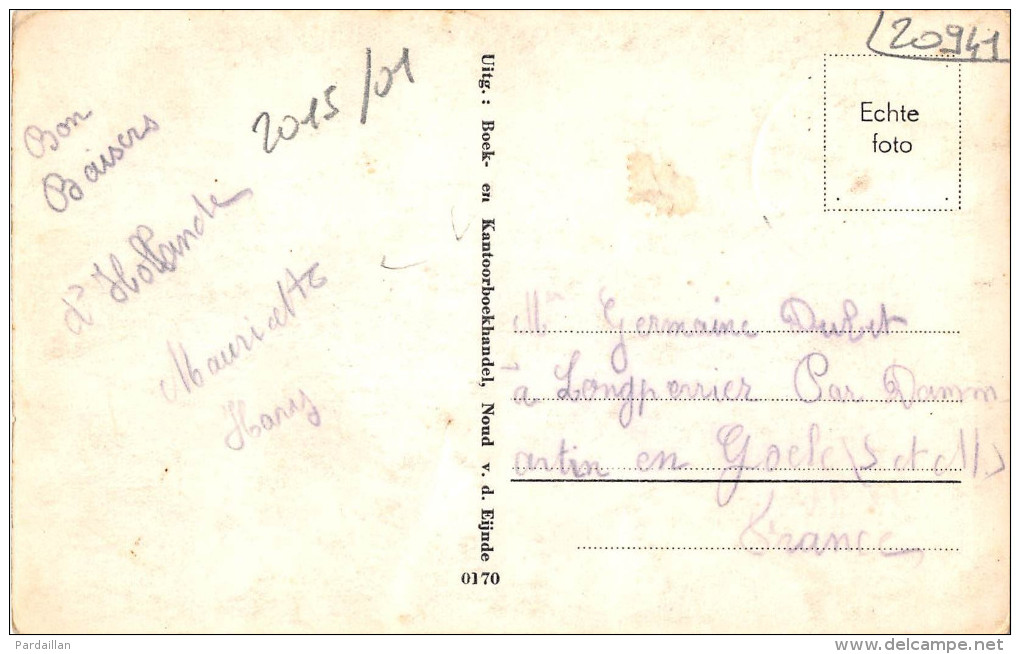 Bon
Baisers
d'Hollande
Mauricette
Hary
2015/01
Uitg.: Boek- en Kantoorboekhandel, Noud v. d. Eijnde
0170
20941
Echte
foto
Germaine Dubit
à Longperrier Par Damm
artin en Goele (S et M)
France
Pardaillan
www.delcampe.net